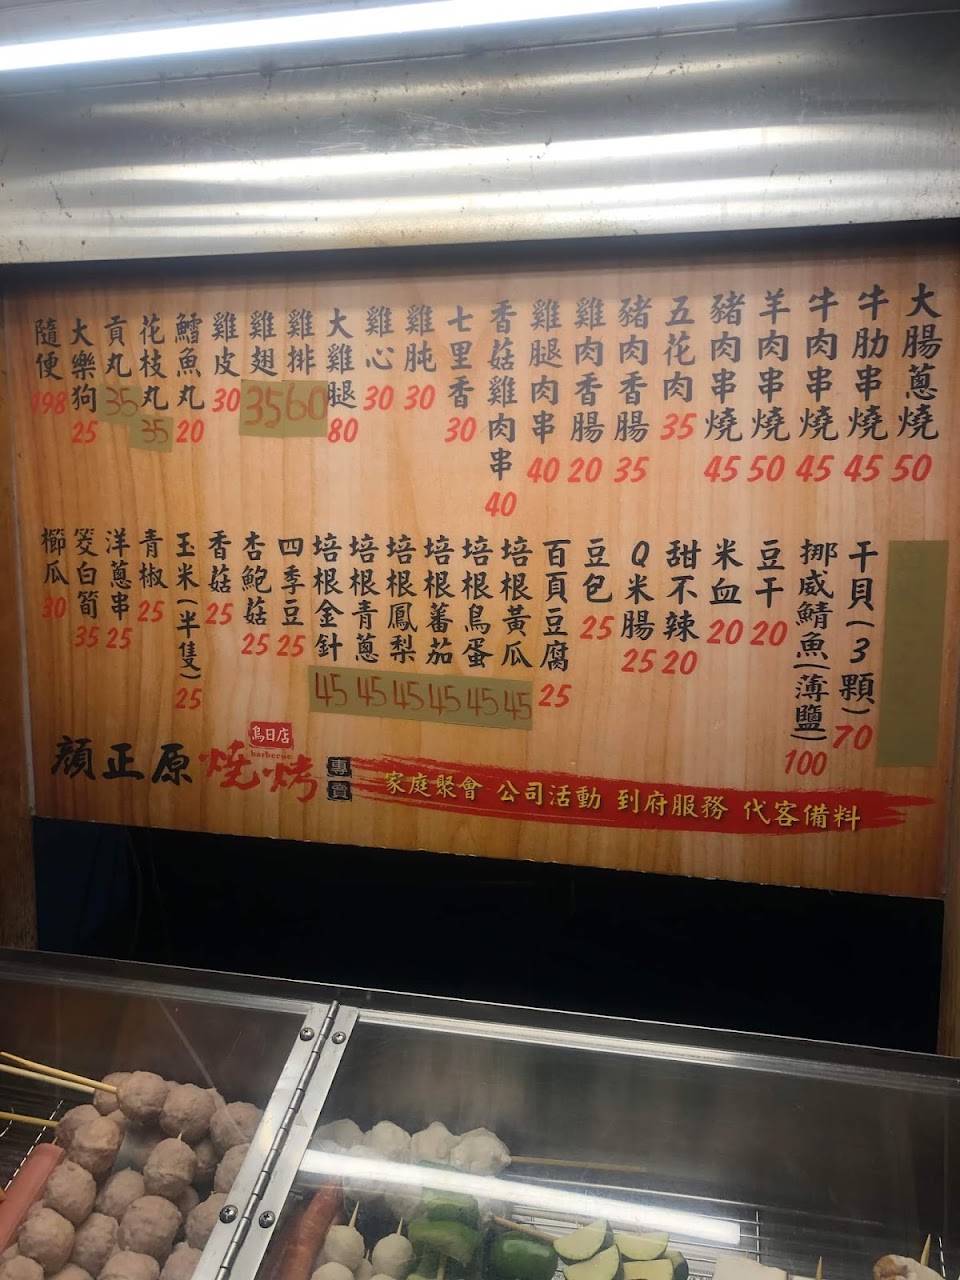 大腸蔥燒 50
牛肋串燒 45
牛肉串燒 45
羊肉串燒 50
豬肉串燒 45
五花肉 35
豬肉香腸 35
雞肉香腸 20
雞腿肉串 40
香菇雞肉串 40
七里香 30
雞肫 30
雞心 30
大雞腿 80
雞排 60
雞翅 35
雞皮 30
鱈魚丸 20
花枝丸 35
貢丸 35
大樂狗 25
隨便 198
干貝(3顆) 70
挪威鯖魚(薄鹽) 100
豆干 20
米血 20
甜不辣 20
Q米腸 25
豆包 25
百頁豆腐 25
培根黃瓜 45
培根鳥蛋 45
培根蕃茄 45
培根鳳梨 45
培根青蔥 45
培根金針 45
四季豆 25
杏鮑菇 25
香菇 25
玉米(半隻) 25
青椒 25
洋蔥串 25
筊白筍 35
櫛瓜 30
烏日店
barbecue
顏正原燒烤專賣
家庭聚會 公司活動 到府服務 代客備料